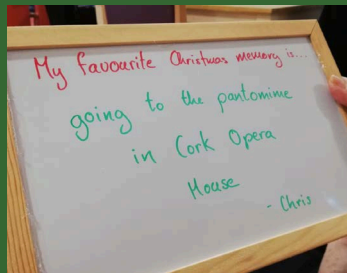 My favourite Christmas memory is...
going to the pantomime
in Cork Opera
House
- Chris